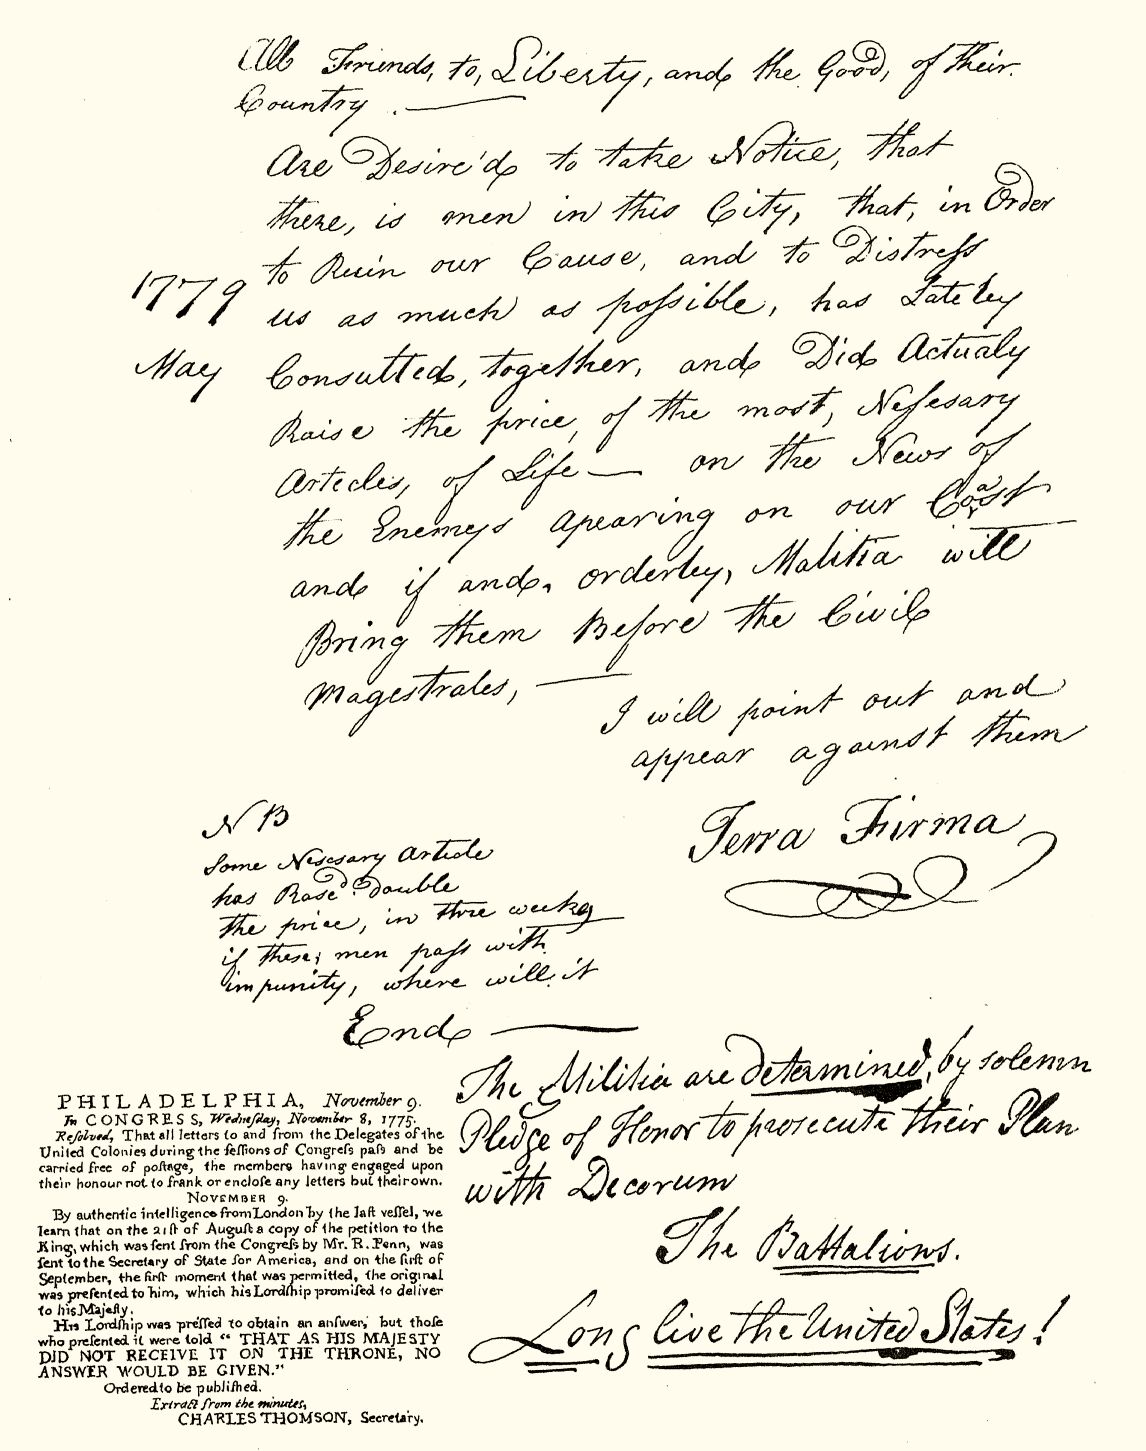 All Friends, to, Liberty, and the Good, of their
Country.
Are Desire'd to take Notice, that
there, is men in this City, that, in Order
to Ruin our Cause, and to Distress
us as much as possible, has Lateley
Consulted, together, and Did Actualy
Raise the price, of the most, Nesesary
Artecles, of Life — on the News of
the Enemeys apearing on our Coast
and if and, orderley, Malitia will
Bring them Before the Civil
Magestrates, —
1779
May
I will point out and
appear against them
Terra Firma
N B
Some Nescsary Article
has Rase'd Double
the price, in three weeks
if these, men pass with
impunity, where will it
End —
The Militia are determined, by solemn
Pledge of Honor to prosecute their Plan
with Decorum
The Battalions.
Long live the United States!
PHILADELPHIA, November 9.
In CONGRESS, Wednesday, November 8, 1775.
Resolved, That all letters to and from the Delegates of the
United Colonies during the sessions of Congress pass and be
carried free of postage, the members having engaged upon
their honour not to frank or enclose any letters but their own.
NOVEMBER 9.
By authentic intelligence from London by the last vessel, we
learn that on the 21st of August a copy of the petition to the
King, which was sent from the Congress by Mr. R. Penn, was
sent to the Secretary of State for America, and on the first of
September, the first moment that was permitted, the original
was presented to him, which his Lordship promised to deliver
to his Majesty.
His Lordship was pressed to obtain an answer, but those
who presented it were told “ THAT AS HIS MAJESTY
DID NOT RECEIVE IT ON THE THRONE, NO
ANSWER WOULD BE GIVEN.”
Ordered to be published.
Extract from the minutes,
CHARLES THOMSON, Secretary.